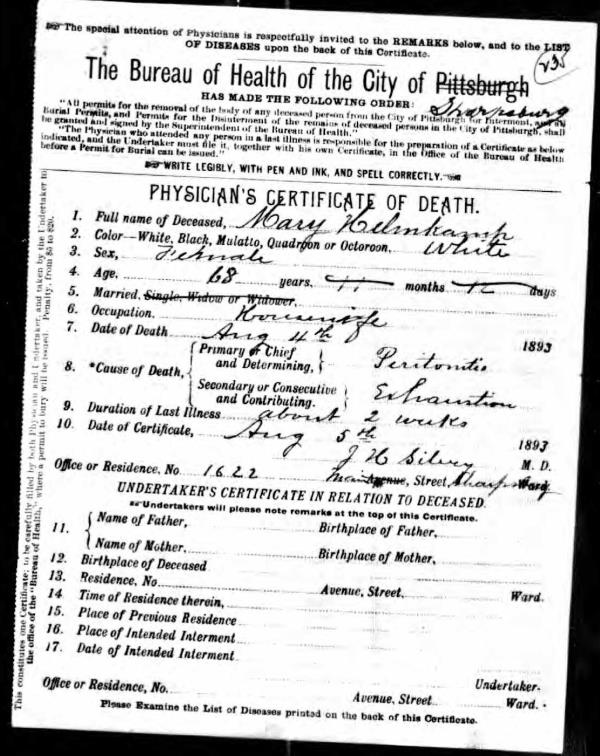 The special attention of Physicians is respectfully invited to the REMARKS below, and to the LIST
OF DISEASES upon the back of this Certificate.
235
The Bureau of Health of the City of Pittsburgh
HAS MADE THE FOLLOWING ORDER:
Sharpsburg
"All permits for the removal of the body of any deceased person from the City of Pittsburgh for Interment, and all
Burial Permits, and Permits for the Disinterment of the remains of deceased persons in the City of Pittsburgh, shall
be granted and signed by the Superintendent of the Bureau of Health."
"The Physician who attended any person in a last illness is responsible for the preparation of a Certificate as below
indicated, and the Undertaker must file it, together with his own Certificate, in the Office of the Bureau of Health
before a Permit for Burial can be issued."
WRITE LEGIBLY, WITH PEN AND INK, AND SPELL CORRECTLY.
PHYSICIAN'S CERTIFICATE OF DEATH.
1. Full name of Deceased, Mary Helmkamp
2. Color—White, Black, Mulatto, Quadroon or Octoroon, White
3. Sex, Female
4. Age, 68 years, 11 months 12 days
5. Married, Single, Widow or Widower,
6. Occupation. Housewife
7. Date of Death Aug 4th 1893
8. *Cause of Death, Primary or Chief and Determining, Peritonitis
Secondary or Consecutive and Contributing. Exhaustion
9. Duration of Last Illness about 2 weeks
10. Date of Certificate, Aug 5th 1893
J H M. D.
Office or Residence, No 1622 Main Avenue, Street, Sharpsburg Ward
UNDERTAKER'S CERTIFICATE IN RELATION TO DECEASED.
Undertakers will please note remarks at the top of this Certificate.
11. Name of Father, Birthplace of Father,
Name of Mother, Birthplace of Mother,
12. Birthplace of Deceased
13. Residence, No. Avenue, Street, Ward.
14 Time of Residence therein,
15. Place of Previous Residence
16. Place of Intended Interment
17. Date of Intended Interment
Undertaker.
Office or Residence, No. Avenue, Street Ward.
Please Examine the List of Diseases printed on the back of this Certificate.
This constitutes one Certificate: to be carefully filled by both Physician and Undertaker, and taken by the Undertaker to
the office of the "Bureau of Health," where a permit to bury will be issued. Penalty, from $5 to $20.